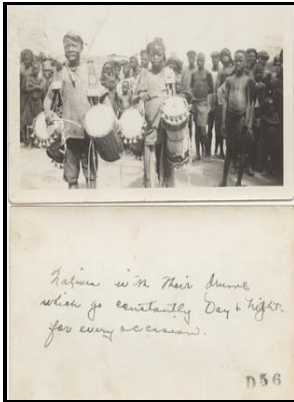 Natives with their drums
which go constantly Day & Night
for every occasion.
D56